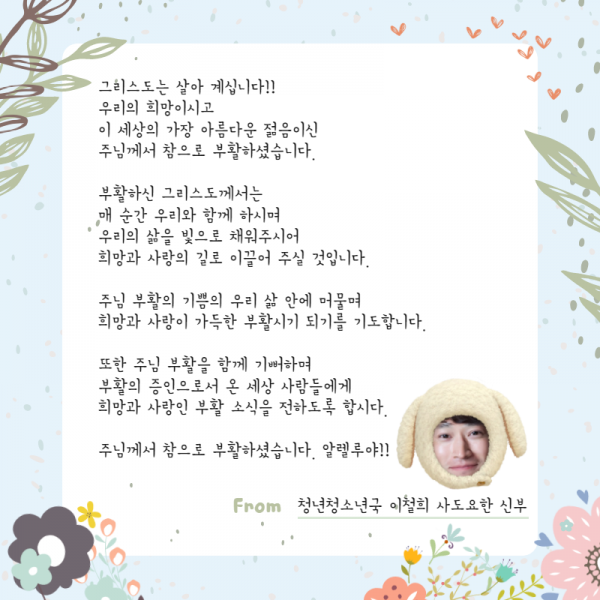 그리스도는 살아 계십니다!!
우리의 희망이시고
이 세상의 가장 아름다운 젊음이신
주님께서 참으로 부활하셨습니다.
부활하신 그리스도께서는
매 순간 우리와 함께 하시며
우리의 삶을 빛으로 채워주시어
희망과 사랑의 길로 이끌어 주실 것입니다.
주님 부활의 기쁨의 우리 삶 안에 머물며
희망과 사랑이 가득한 부활시기 되기를 기도합니다.
또한 주님 부활을 함께 기뻐하며
부활의 증인으로서 온 세상 사람들에게
희망과 사랑인 부활 소식을 전하도록 합시다.
주님께서 참으로 부활하셨습니다. 알렐루야!!
From 청년청소년국 이철희 사도요한 신부